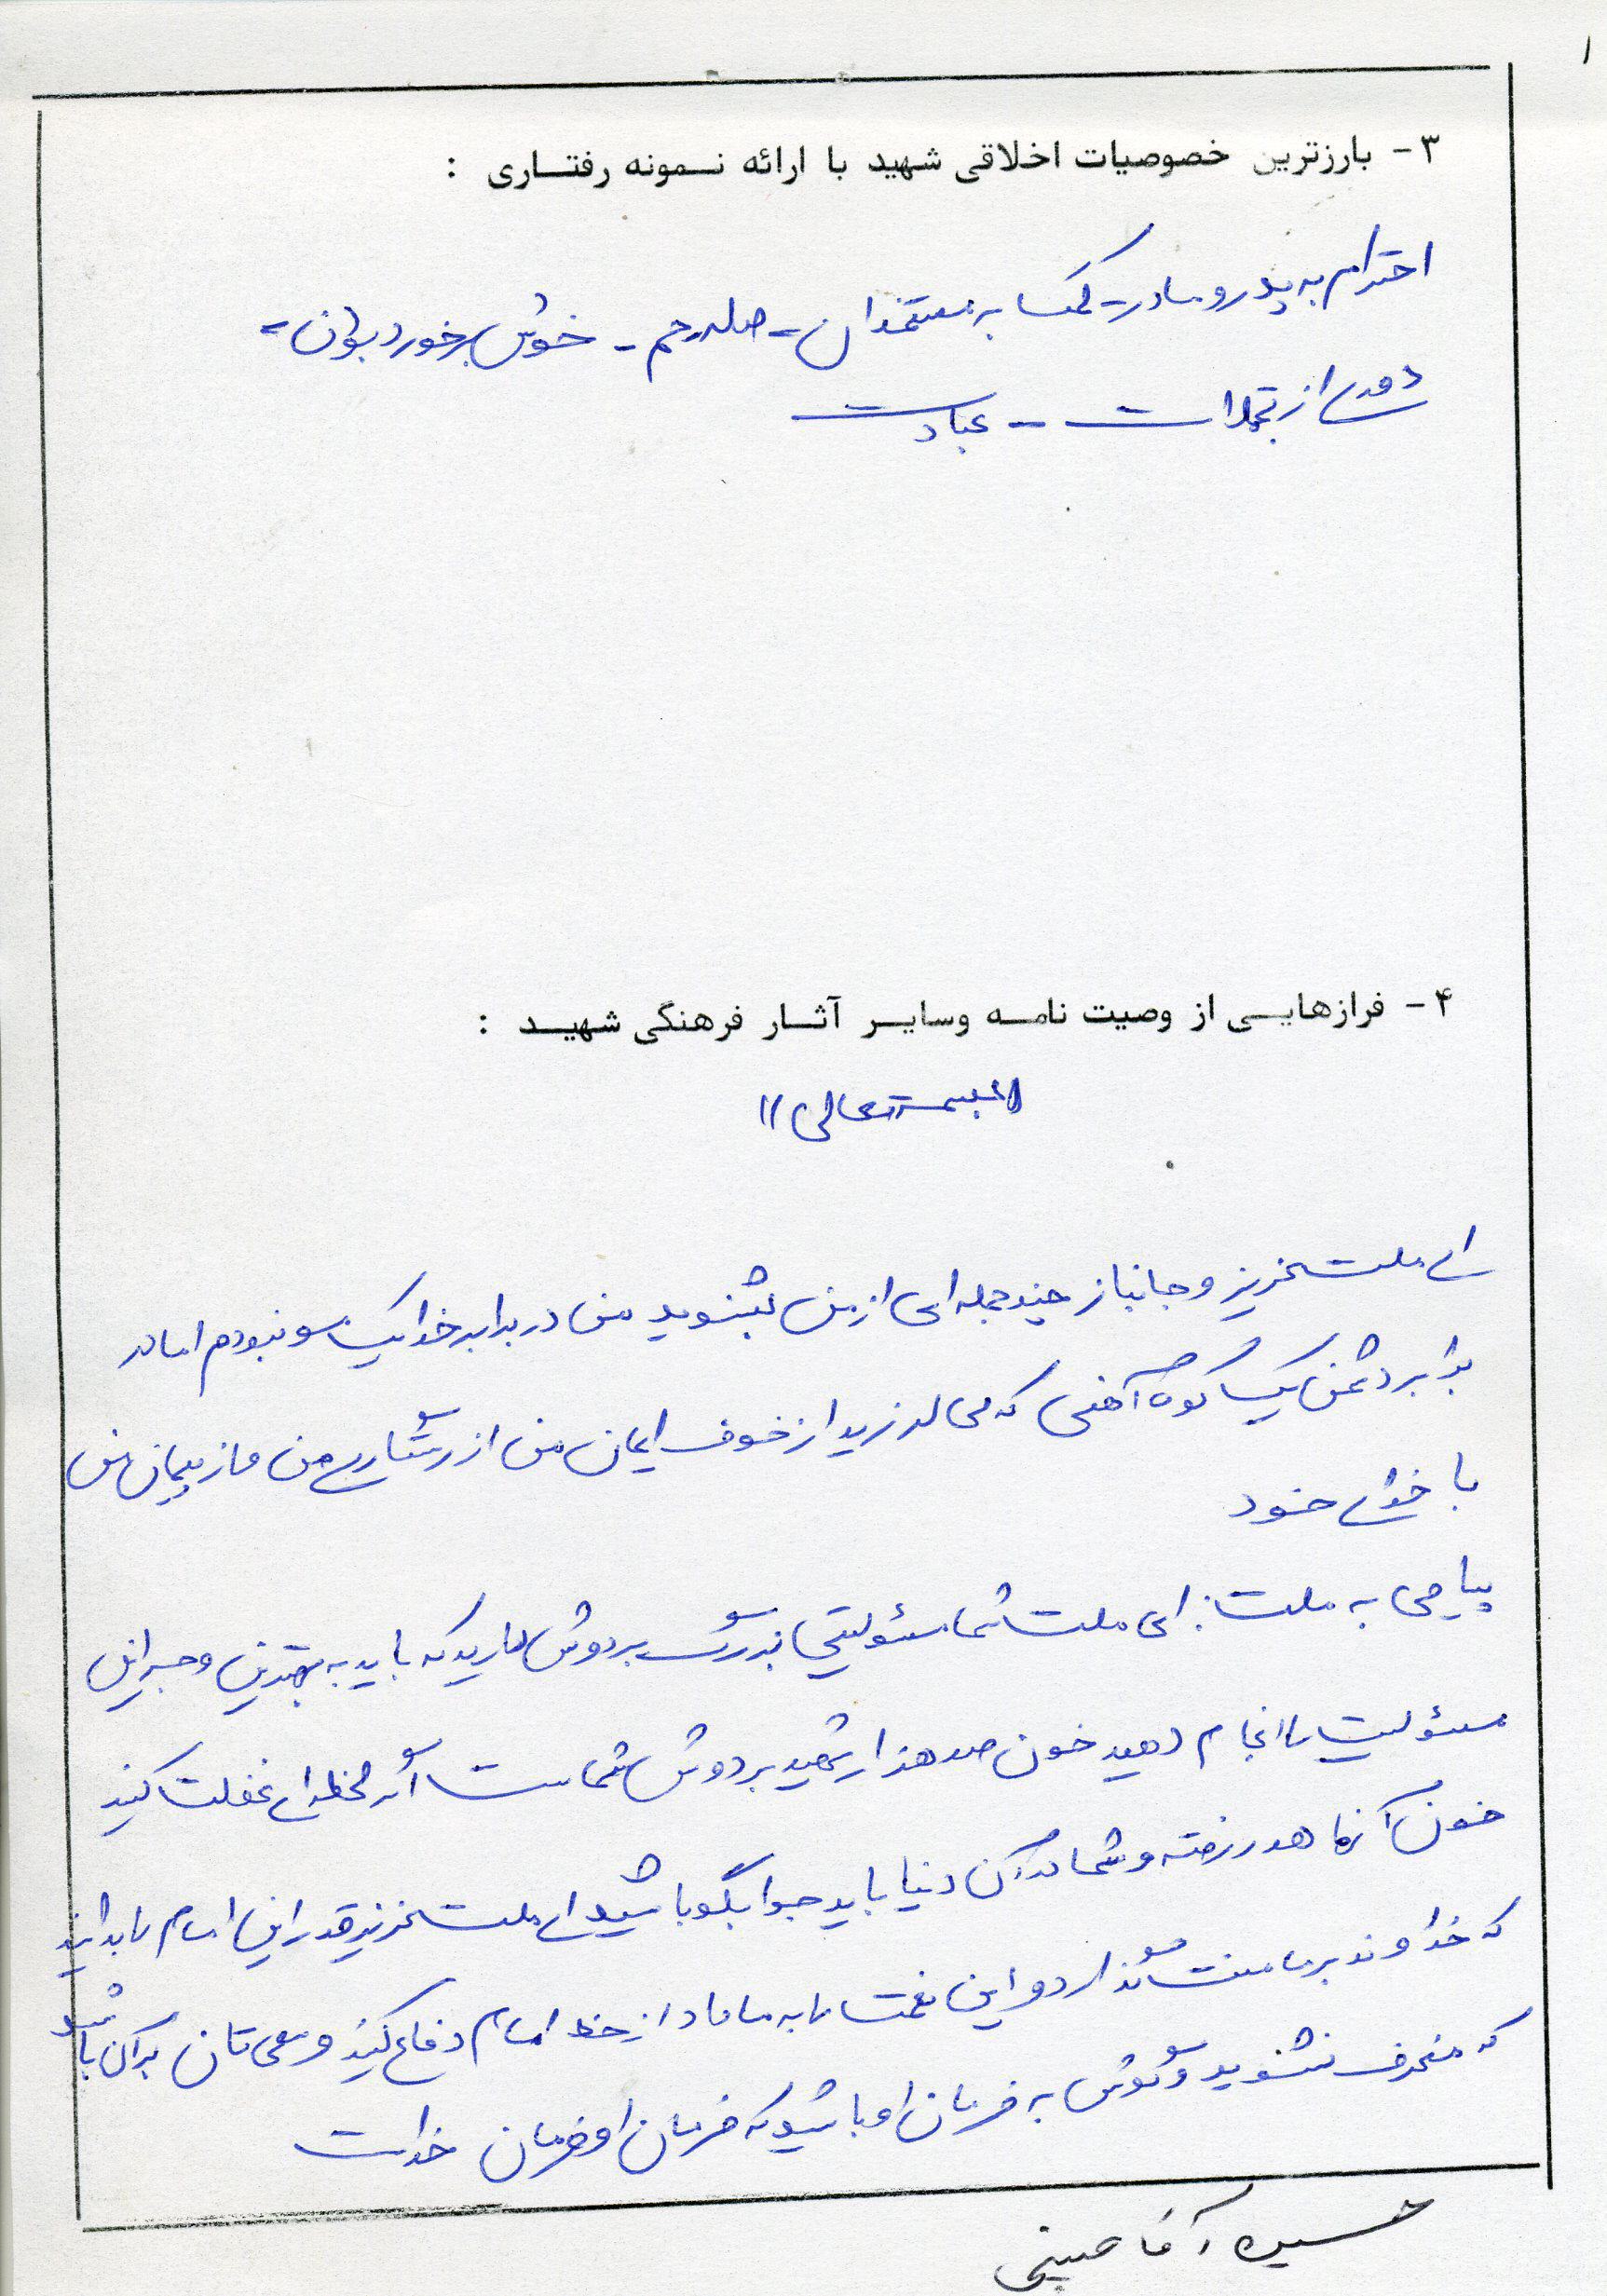 ۱
۳- بارزترین خصوصیات اخلاقی شهید با ارائه نمونه رفتاری :
احترام به پدر و مادر - کمک به مستمندان - صله رحم - خوش برخورد بودن -
دوری از تجملات - عبادت
۴- فرازهایی از وصیت نامه وسایر آثار فرهنگی شهید :
"بسمه تعالی"
ای ملت عزیز و جانباز چند جمله ای از من بشنوید من در برابر خدا یک سو نبودم اما در
برابر دشمن یک کوه آهنی که می لرزید از خوف ایمان من از من و از پیمان من
با خدای خود
پیامی به ملت: ای ملت شما مسئولیتی بزرگ بر دوش دارید که باید به بهترین وجه این
مسئولیت را انجام دهید خون صد هزار شهید بر دوش شماست اگر لحظه ای غفلت کنید
خون آنها هدر رفته و شما در آن دنیا باید جوابگو باشید ای ملت عزیز قدر این امام را بدانید
که خداوند بر ما منت گذارد و این نعمت را به ما داد از خط امام دفاع کنید و سعی تان بر آن باشد
که منحرف نشوید و گوش به فرمان او باشید که فرمان او فرمان خداست
حسین آقا حسینی